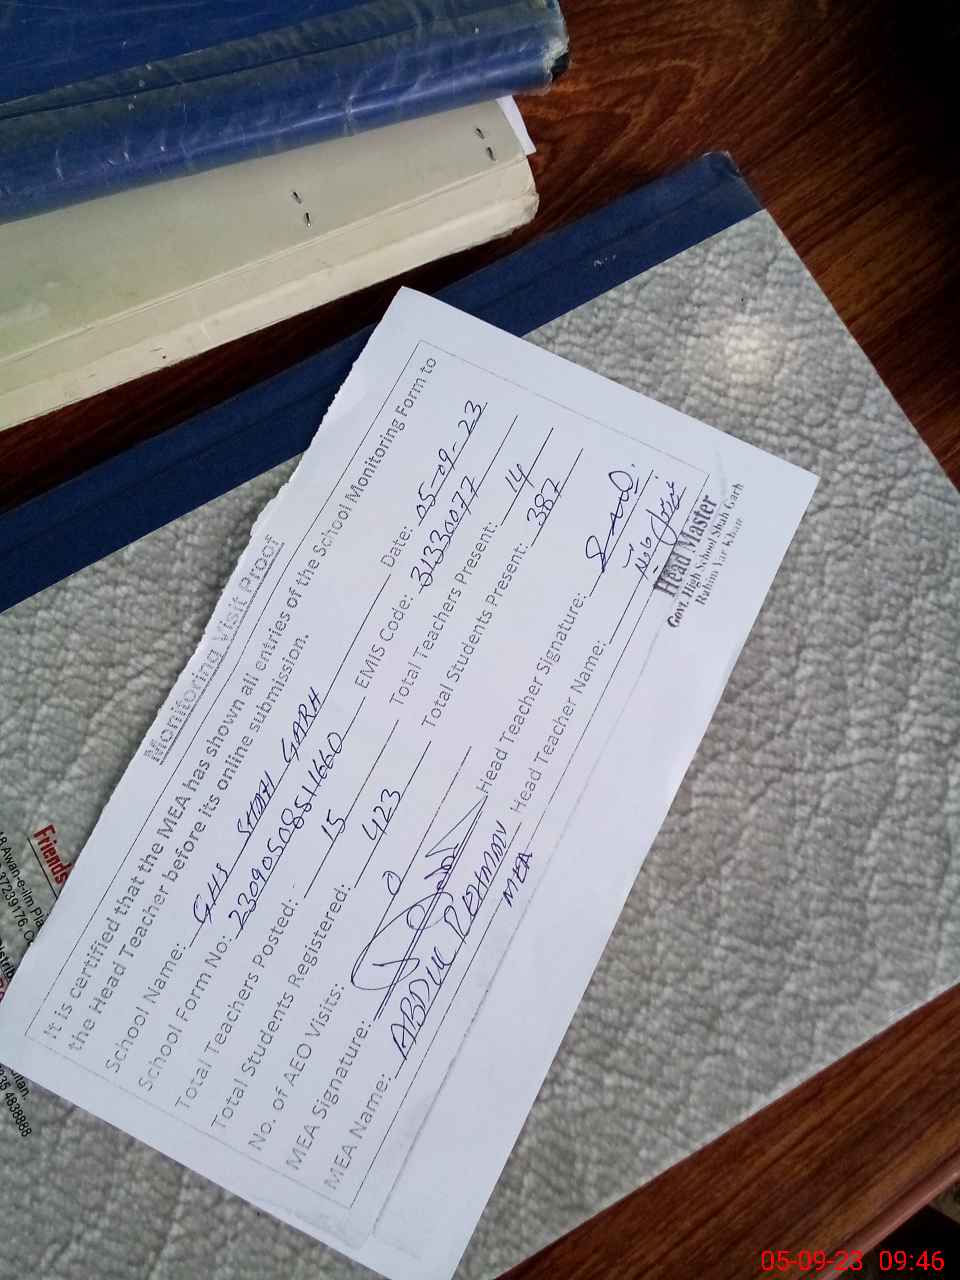 Monitoring Visit Proof
It is certified that the MEA has shown all entries of the School Monitoring Form to
the Head Teacher before its online submission.
School Name: GHS SHAH GARH Date: 05-09-23
School Form No: 23090508511660 EMIS Code: 31330077
Total Teachers Posted: 15 Total Teachers Present: 14
Total Students Registered: 423 Total Students Present: 387
No. of AEO Visits: 0
MEA Signature: Head Teacher Signature:
MEA Name: ABDUL REHMAN Head Teacher Name:
MEA
Head Master
Govt. High School Shah Garh
Rahim Yar Khan
Friends
05-09-23 09:46